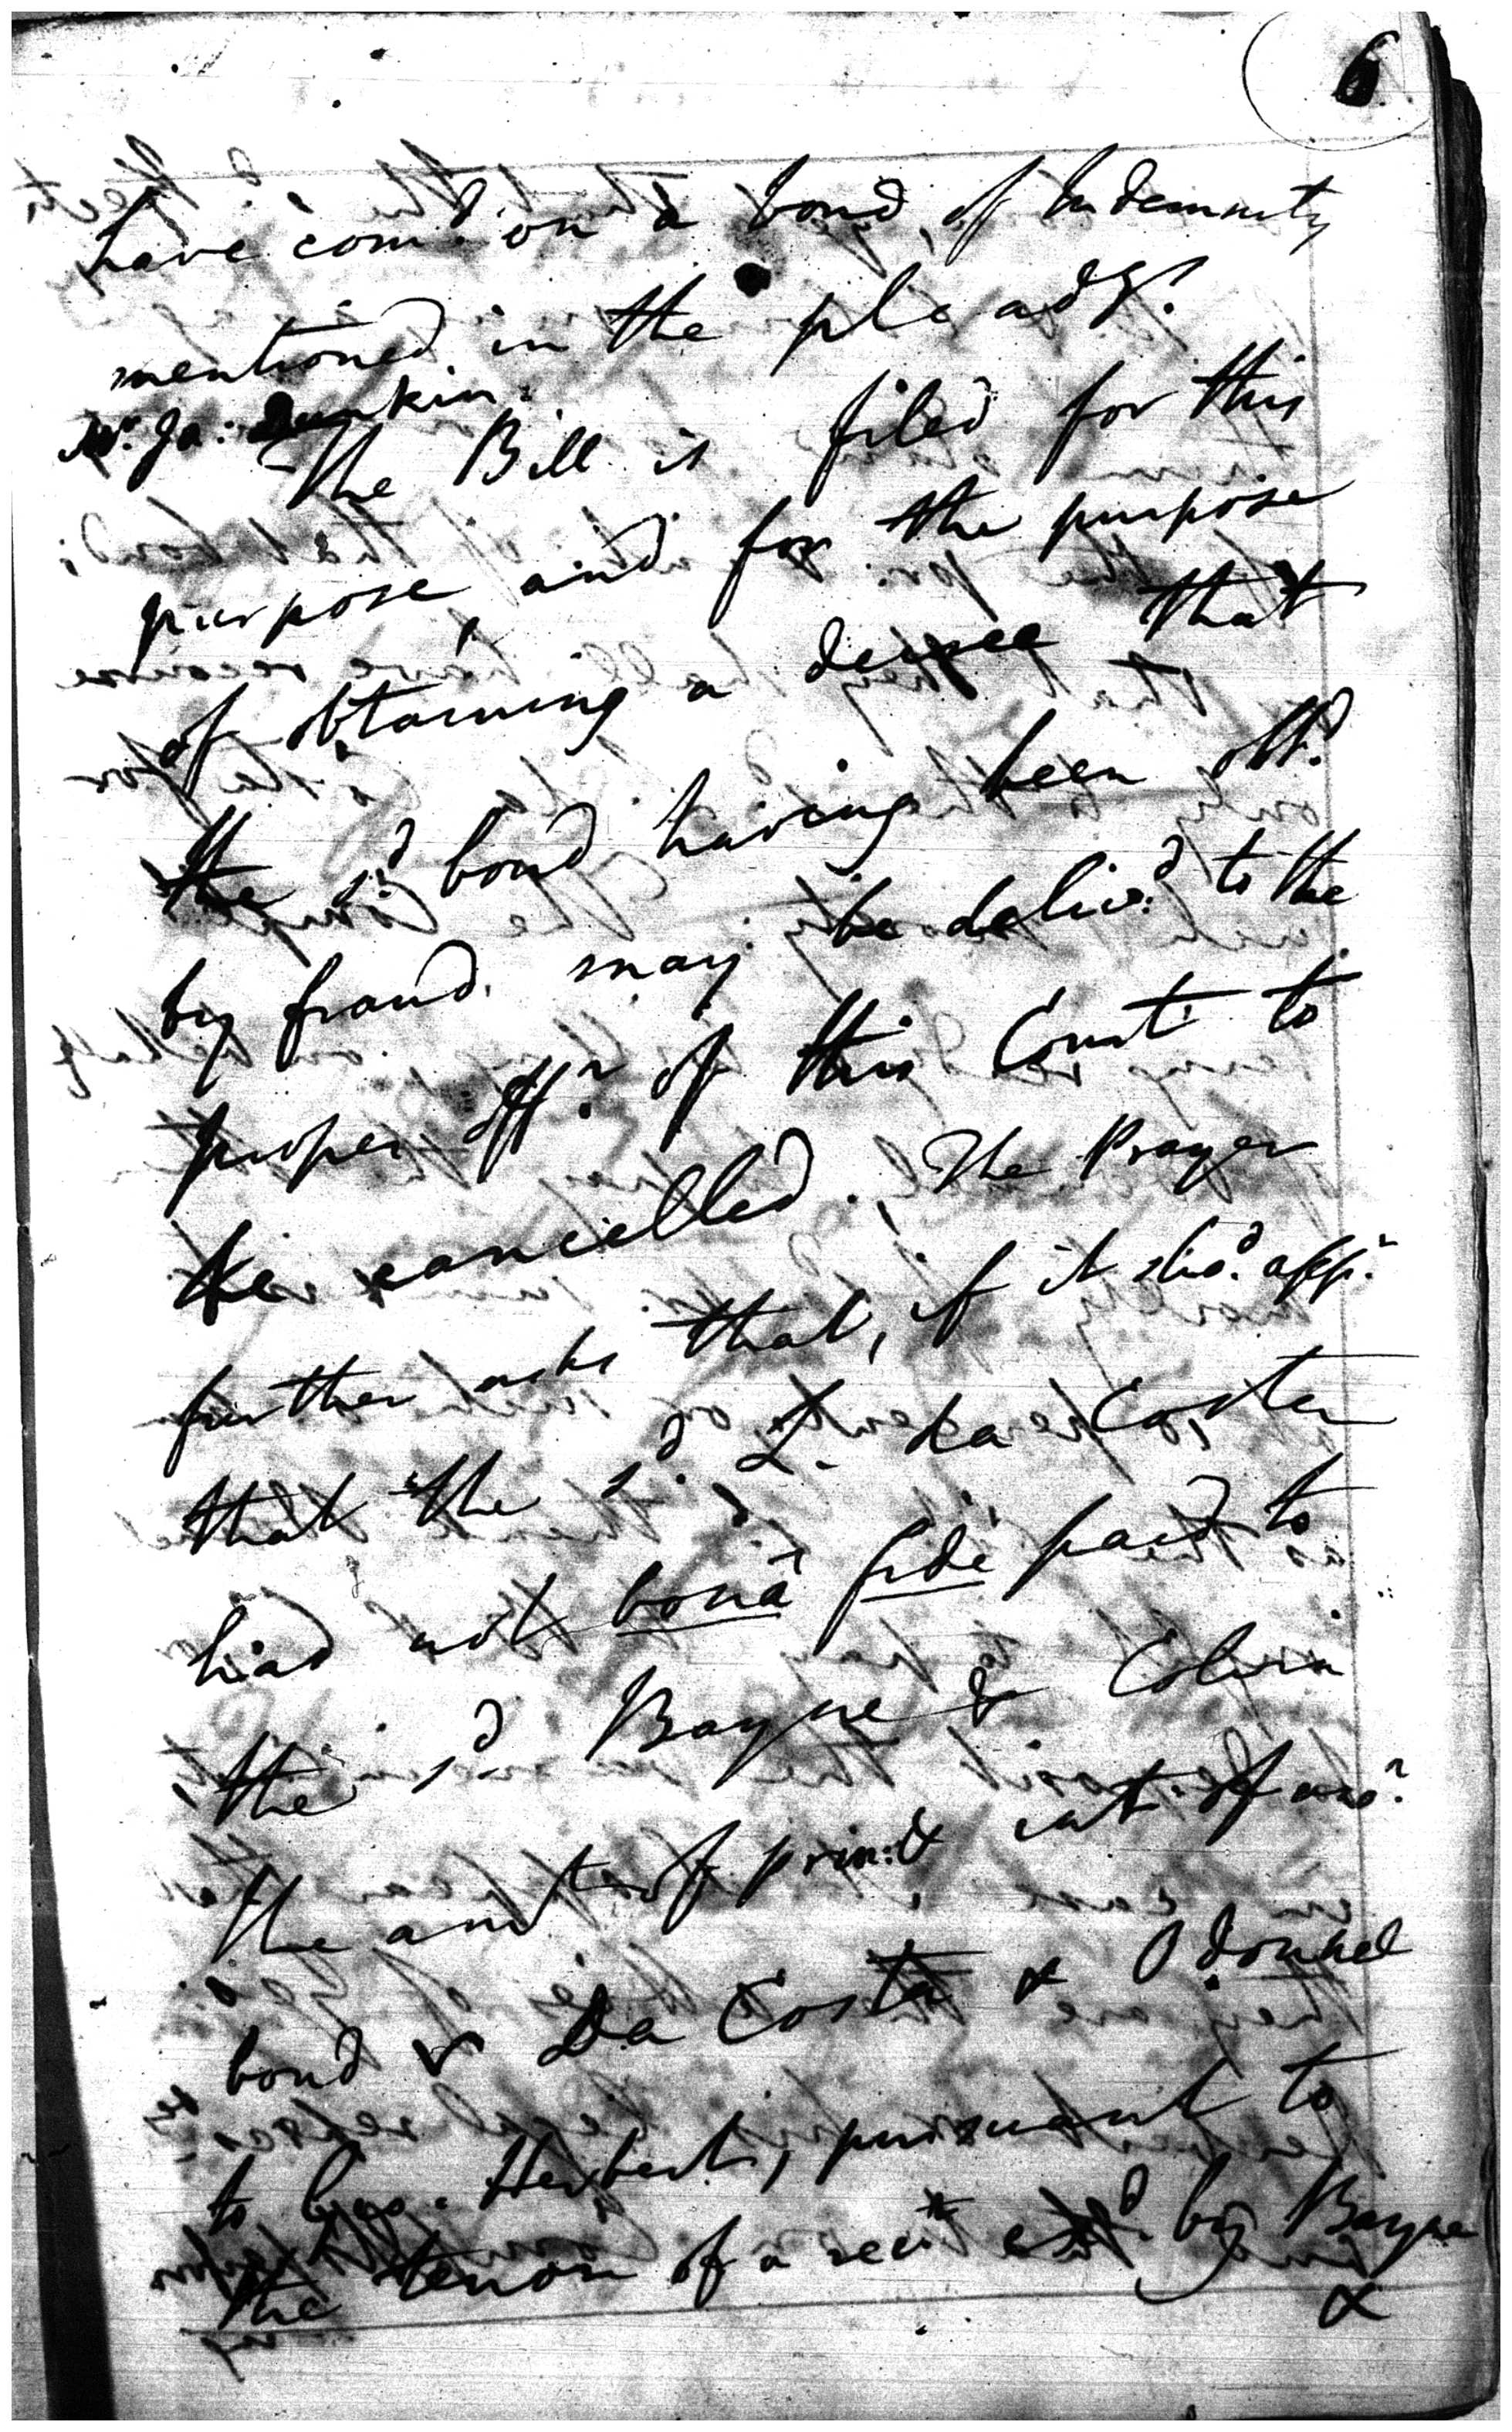 6
have com.d on a bond, of Indemnity
mentioned in the pleadgs.
Mr. Ja: Dunkin.
The Bill is filed for this
purpose, and for the purpose
of obtaining a decree that
the s.d bond having been obt.d
by fraud, may be deliv.d to the
proper Off.r of this Court to
be cancelled. The Prayer
further asks that, if it sho.d app.r
that the s.d L. Da Costa
had not bonâ fide paid to
the s.d Bayne & Colvin
the amt of prin: & int of
bond Da Costa & Odonnel
to Geo. Herbert, pursuant to
the tenor of a rect by Bayne
&